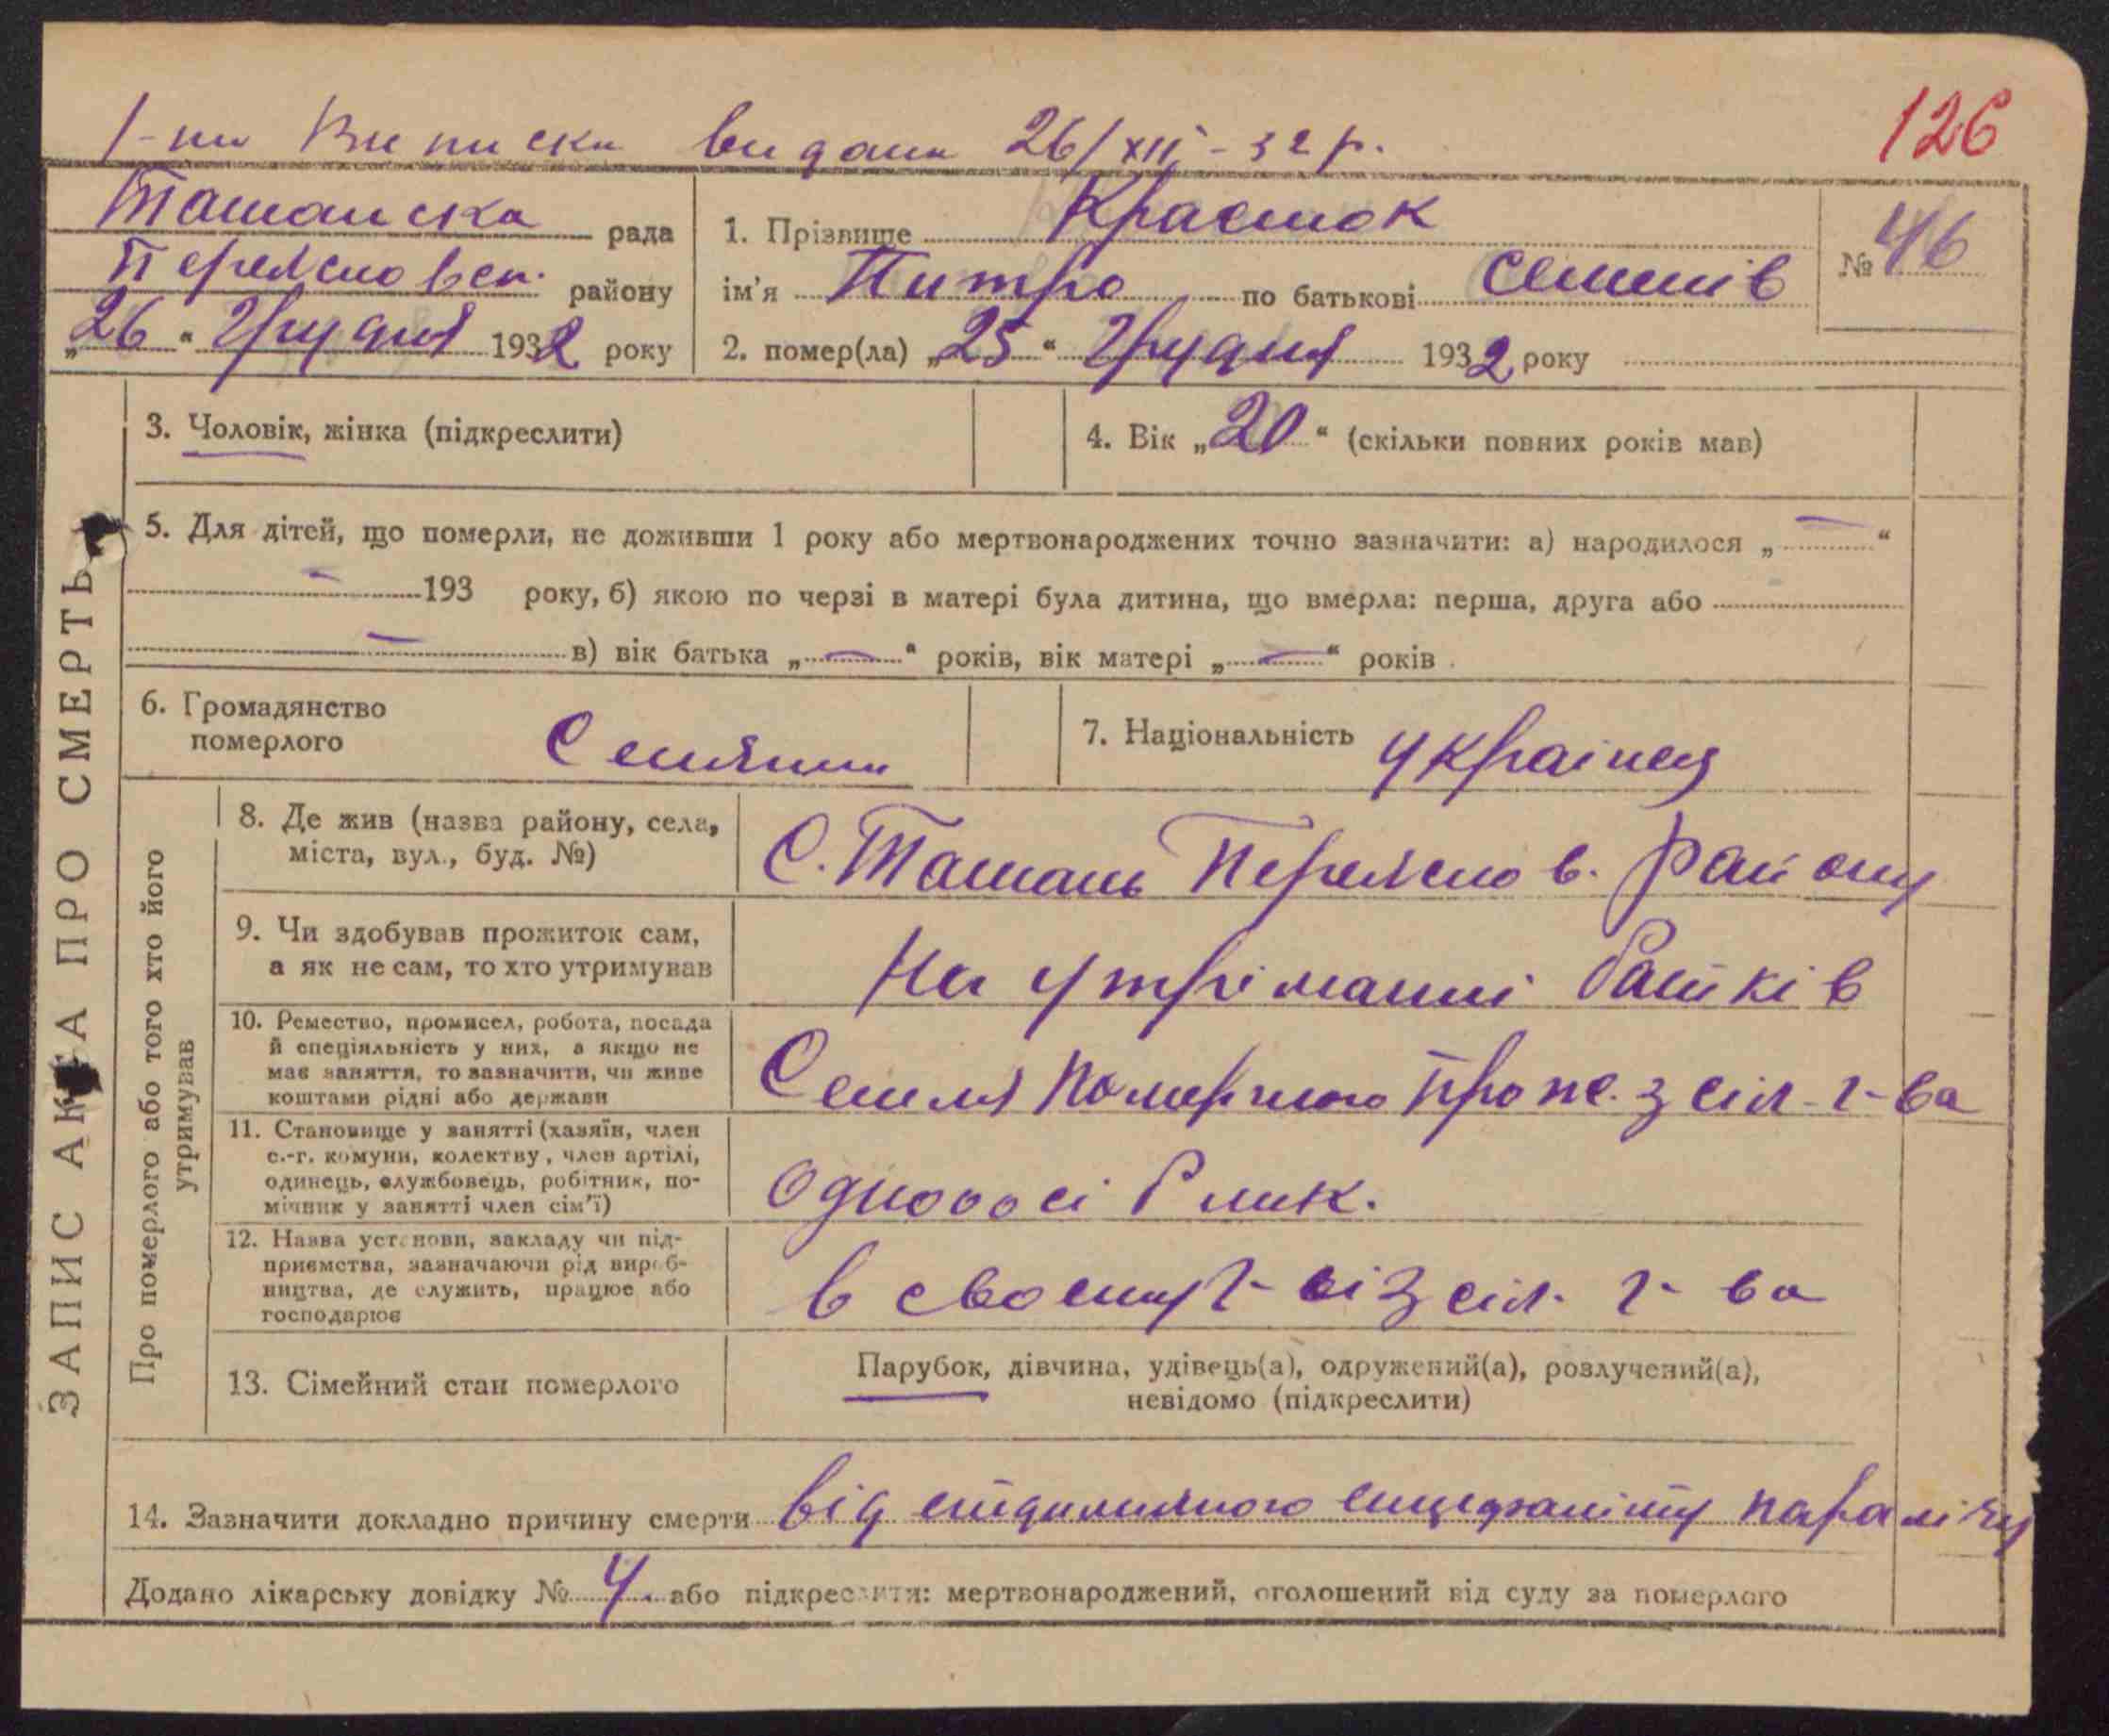 1-ша Виписка видана 26/XII-32 р.
126
Ташанска рада
Переясловск. району
„26“ Грудня 1932 року
1. Прізвище
ім'я Питро по батькові Семенів
№ 46
2. помер(ла) „25“ Грудня 1932 року
3. Чоловік, жінка (підкреслити)
4. Вік „20“ (скільки повних років мав)
5. Для дітей, що померли, не доживши 1 року або мертвонароджених точно зазначити: а) народилося „ — “
— 193 року, б) якою по черзі в матері була дитина, що вмерла: перша, друга або
— в) вік батька „ — “ років, вік матері „ — “ років
6. Громадянство
померлого
7. Національність українец
ЗАПИС АКТА ПРО СМЕРТЬ
Про померлого або того хто його
утримував
8. Де жив (назва району, села,
міста, вул., буд. №)
С. Ташань Переяслов. району
9. Чи здобував прожиток сам,
а як не сам, то хто утримував
На утріманні батьків
10. Ремество, промисел, робота, посада
й спеціяльність у них, а якщо не
має заняття, то зазначити, чи живе
коштами рідні або держави
Семья Померлого прож. з сіл. г-ва
11. Становище у занятті (хазяїн, член
с.-г. комуни, колектву, член артілі,
одинець, службовець, робітник, по-
мічник у занятті член сім'ї)
12. Назва установи, закладу чи під-
приємства, зазначаючи рід вироб-
ництва, де служить, працює або
господарює
в своєму г-ві з сіл. г-ва
13. Сімейний стан померлого
Парубок, дівчина, удівець(а), одружений(а), розлучений(а),
невідомо (підкреслити)
14. Зазначити докладно причину смерти від енцефаліту паралічу
Додано лікарську довідку № 4. або підкреслити: мертвонароджений, оголошений від суду за померлого